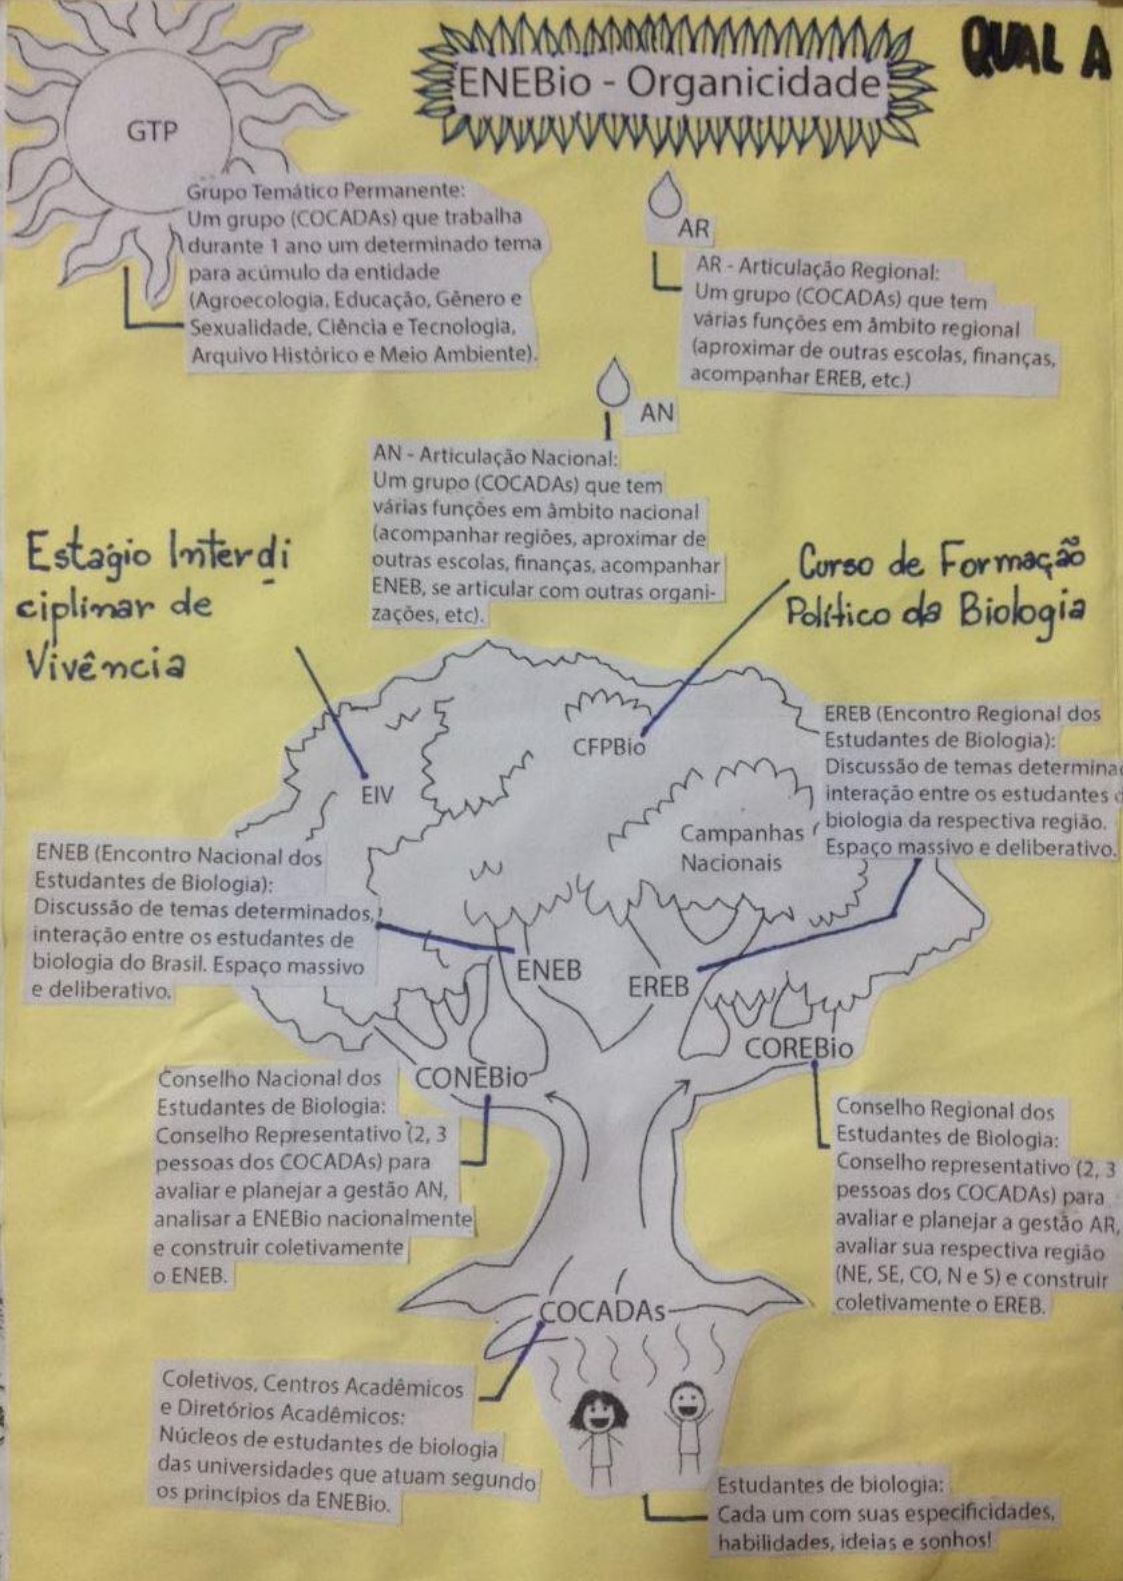 GTP
ENEBio - Organicidade
QUAL A
Grupo Temático Permanente:
Um grupo (COCADAs) que trabalha
durante 1 ano um determinado tema
para acúmulo da entidade
(Agroecologia, Educação, Gênero e
Sexualidade, Ciência e Tecnologia,
Arquivo Histórico e Meio Ambiente).
AR
AR - Articulação Regional:
Um grupo (COCADAs) que tem
várias funções em âmbito regional
(aproximar de outras escolas, finanças,
acompanhar EREB, etc.)
AN
AN - Articulação Nacional:
Um grupo (COCADAs) que tem
várias funções em âmbito nacional
(acompanhar regiões, aproximar de
outras escolas, finanças, acompanhar
ENEB, se articular com outras organi-
zações, etc).
Estagio Interdi
ciplinar de
Vivência
Curso de Formação
Político da Biologia
CFPBio
EIV
Campanhas
Nacionais
EREB (Encontro Regional dos
Estudantes de Biologia):
Discussão de temas determina
interação entre os estudantes
biologia da respectiva região.
Espaço massivo e deliberativo.
ENEB (Encontro Nacional dos
Estudantes de Biologia):
Discussão de temas determinados,
interação entre os estudantes de
biologia do Brasil. Espaço massivo
e deliberativo.
ENEB
EREB
CONEBio
COREBio
Conselho Nacional dos
Estudantes de Biologia:
Conselho Representativo (2, 3
pessoas dos COCADAs) para
avaliar e planejar a gestão AN,
analisar a ENEBio nacionalmente
e construir coletivamente
o ENEB.
Conselho Regional dos
Estudantes de Biologia:
Conselho representativo (2, 3
pessoas dos COCADAs) para
avaliar e planejar a gestão AR,
avaliar sua respectiva região
(NE, SE, CO, N e S) e construir
coletivamente o EREB.
COCADAs
Coletivos, Centros Acadêmicos
e Diretórios Acadêmicos:
Núcleos de estudantes de biologia
das universidades que atuam segundo
os princípios da ENEBio.
Estudantes de biologia:
Cada um com suas especificidades,
habilidades, ideias e sonhos!